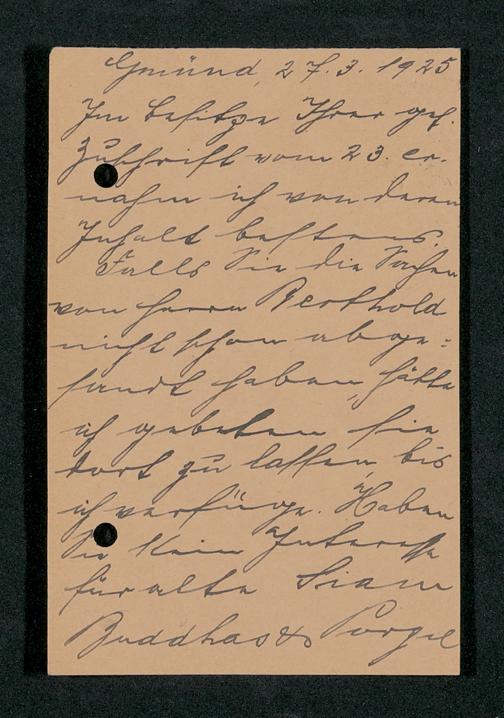 Gmünd, 27.3.1925
Im Besitze Ihrer gef.
Zuschrift vom 23. cr.
nahm ich von deren
Inhalt bestens.
Falls Sie die Sachen
von Herrn Berthold
nicht schon abge-
sandt haben, hätte
ich gebeten sie
dort zu lassen bis
ich verfüge. Haben
Sie kein Interesse
für alte Siam
Buddhas &